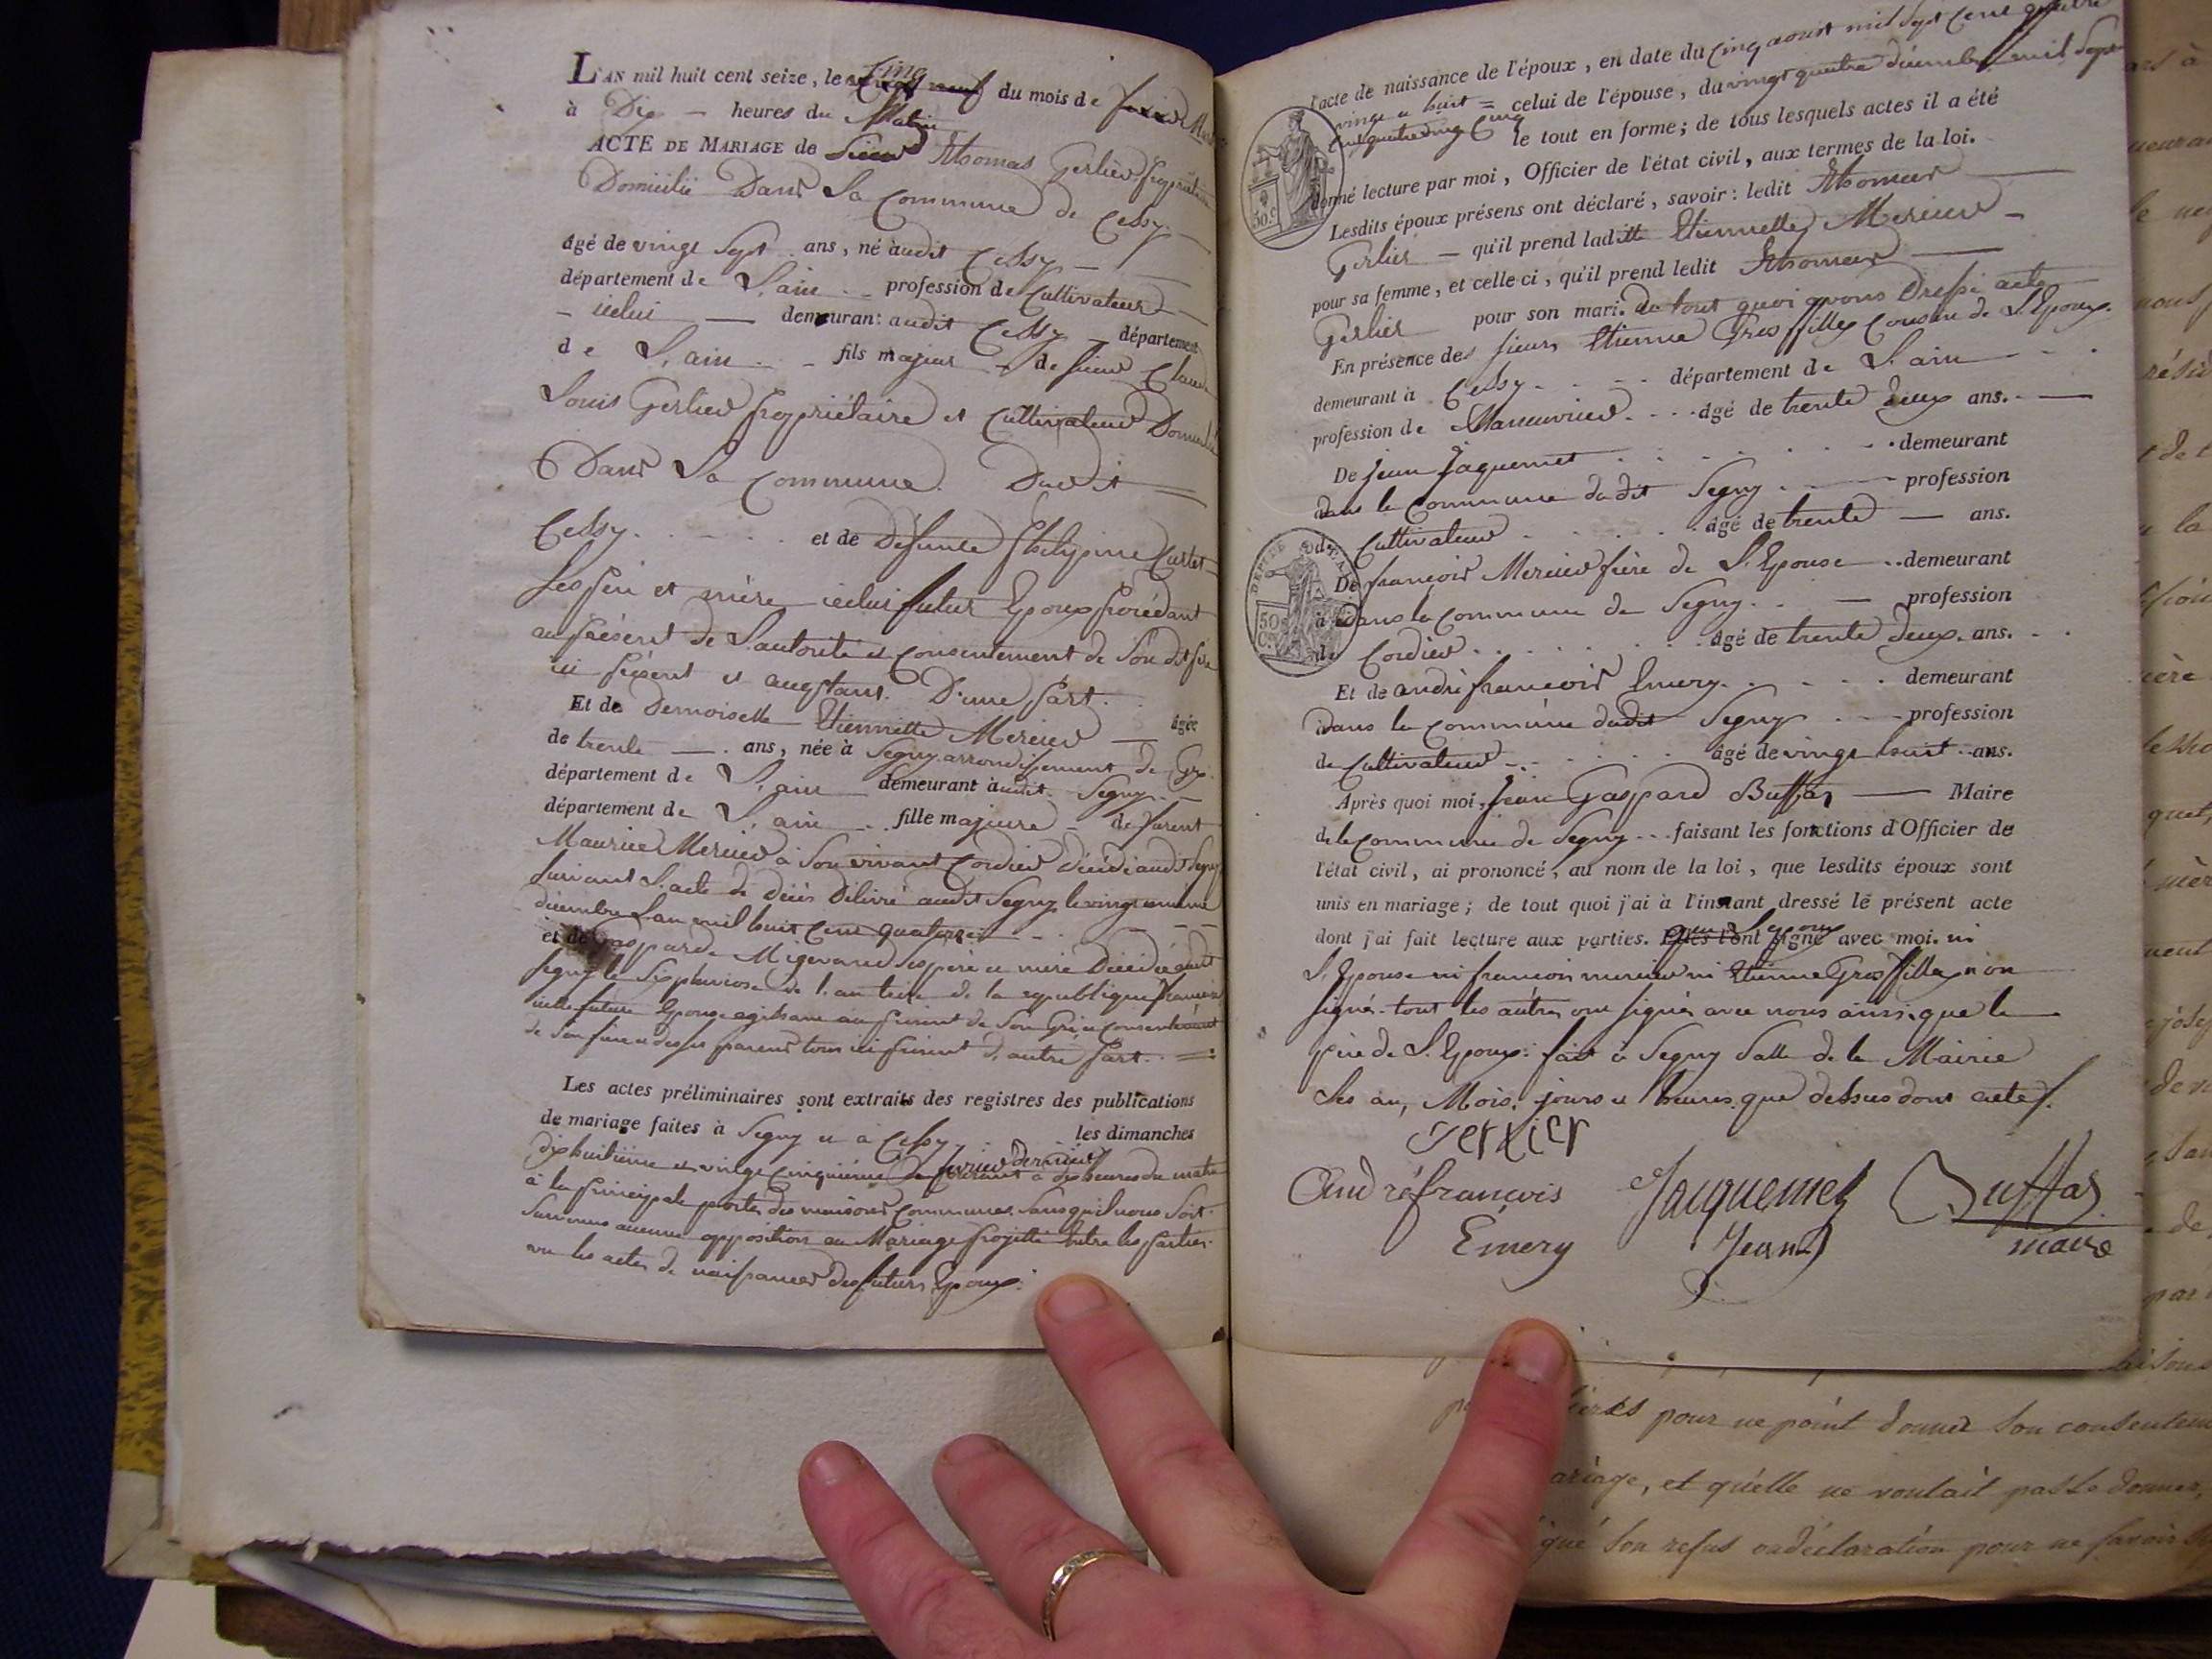 L'AN mil huit cent seize, le cinq du mois de Mars
à Dix — heures du Matin
ACTE DE MARIAGE de Sieur Thomas Gerlier propriétaire
Domicilié Dans La Commune de Cessy
âgé de vingt Sept ans, né àudit Cessy —
département de L'ain profession de Cultivateur
— icelui — demeurant audit Cessy — département
de L'ain fils majeur de Sieur Claude
Louis Gerlier propriétaire et Cultivateur
Dans La Commune Dudit
Cessy et de Défunte Philipine
Ses père et mère icelui futur Epoux procédant
au présent de L'autorité et consentement de Son dit père
ici présent et D'une part.
Et de Demoiselle Etiennette Mercier — âgée
de trente — ans, née à Segny arrondissement de Gex
département de L'ain demeurant àudit Segny
département de L'ain fille majeure de
Maurice Mercier à Son vivant Cordier Décédé audit Segny
Suivant L'acte de Décès Délivré audit Segny le
décembre L'an mil huit cent quatorze
et de Gasparde Migerand Ses père et mère Décédée audit
Segny le Six pluviose de l'an treize de la republique
icelle future Epouse agissant au présent de Son Gré et Consentement
de Son frère et de ses parens tous ici présent D'autre part.
Les actes préliminaires sont extraits des registres des publications
de mariage faites à Segny et à Cessy les dimanches
Dixhuitieme et vingt cinquieme fevrier dernier à dix heures du matin
à la principale porte des maisons Communes Sans qu'il nous Soit
Survenus aucune opposition au Mariage projetté Entre les parties.
vu les actes de naissances des futurs Epoux.
l'acte de naissance de l'époux, en date du cinq aoust mil Sept cent quatre
vingt et huit = celui de l'épouse, du vingt quatre décembre mil Sept
cent quatre ving Cinq le tout en forme; de tous lesquels actes il a été
donné lecture par moi, Officier de l'état civil, aux termes de la loi.
Lesdits époux présens ont déclaré, savoir: ledit Thomas
Gerlier — qu'il prend laditte Etiennette Mercier —
pour sa femme, et celle-ci, qu'il prend ledit Thomas
Gerlier pour son mari. de tout quoi avons Dressé acte
En présence des sieurs Etienne Gros fillex Cousin de L'Epoux.
demeurant à Cessy département de L'ain
profession de Manuvrier âgé de trente deux ans.
De jean jaquemet demeurant
dans la Commune dudit Segny profession
de Cultivateur âgé de trente — ans.
De francois Mercier frère de L'Epouse demeurant
à dans la Commune de Segny — profession
de Cordier âgé de trente deux ans.
Et de andré francois Emery demeurant
dans la Commune dudit Segny profession
de Cultivateur âgé de vingt huit ans.
Après quoi moi, Jean Gaspard Buffas — Maire
de la Commune de Segny faisant les fonctions d'Officier de
l'état civil, ai prononcé, au nom de la loi, que lesdits époux sont
unis en mariage; de tout quoi j'ai à l'instant dressé le présent acte
dont j'ai fait lecture aux parties. signé avec moi. ni
L'Epouse ni francois mercier ni Etienne Gros fillex n'on
signés. tout les autres ont signés avec nous ainsi que le
père de L'Epoux. fait à Segny Salle de la Mairie
Les an, Mois, jours et heures que dessus dont acte.
Gerlier
André francois Jacquemet Buffas
Émery Jean maire
DEPT DE L'AIN
50 C.
pour ne point donner Son consentem
ariage, et quelle ne voulait pas le donner,
qué Son refus ou déclaration pour ne savoir